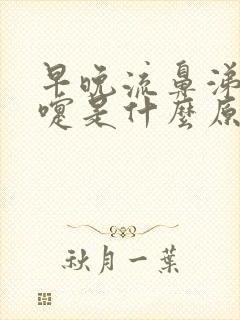 早晚流鼻涕
嚏是什麼原
秋月一葉